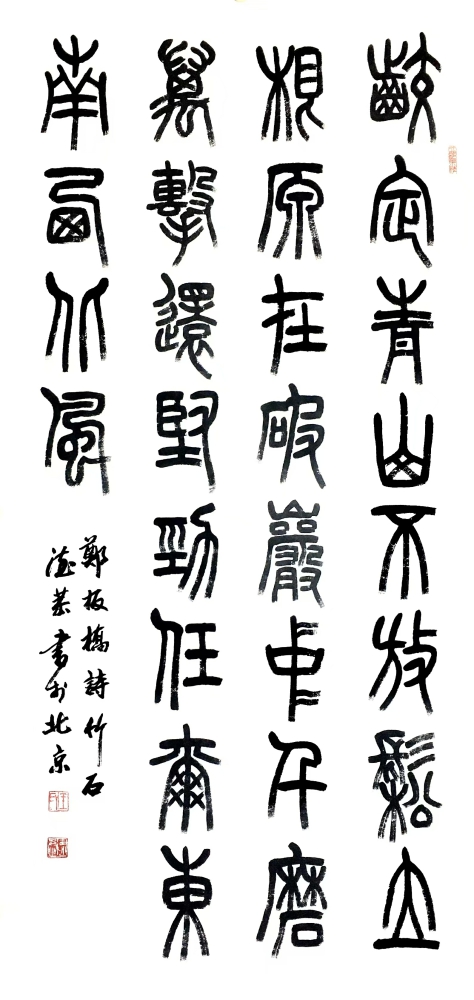 齩定青山不放鬆立
根原在破巖中千磨
萬擊還堅勁任爾東
南西北風
鄭板橋詩竹石
書於北京